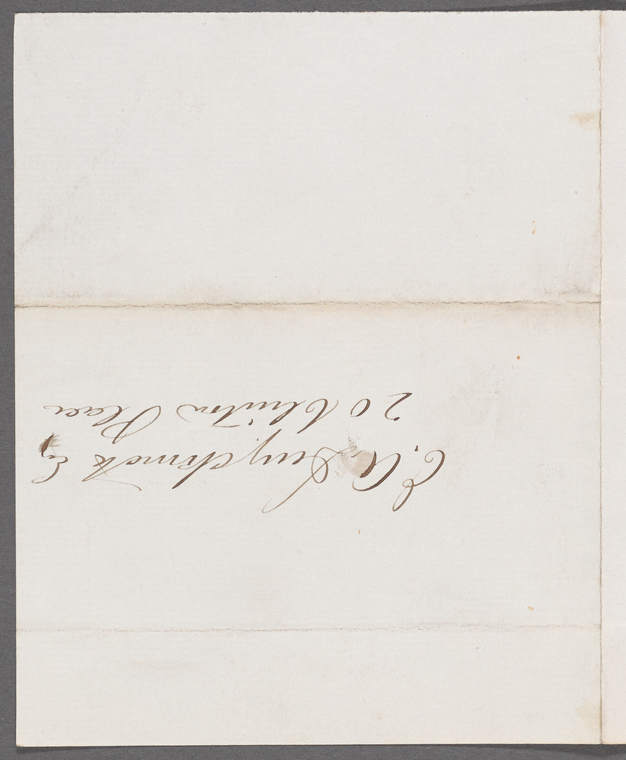 E. A. Duyckinck Esq
20 Clinton Place